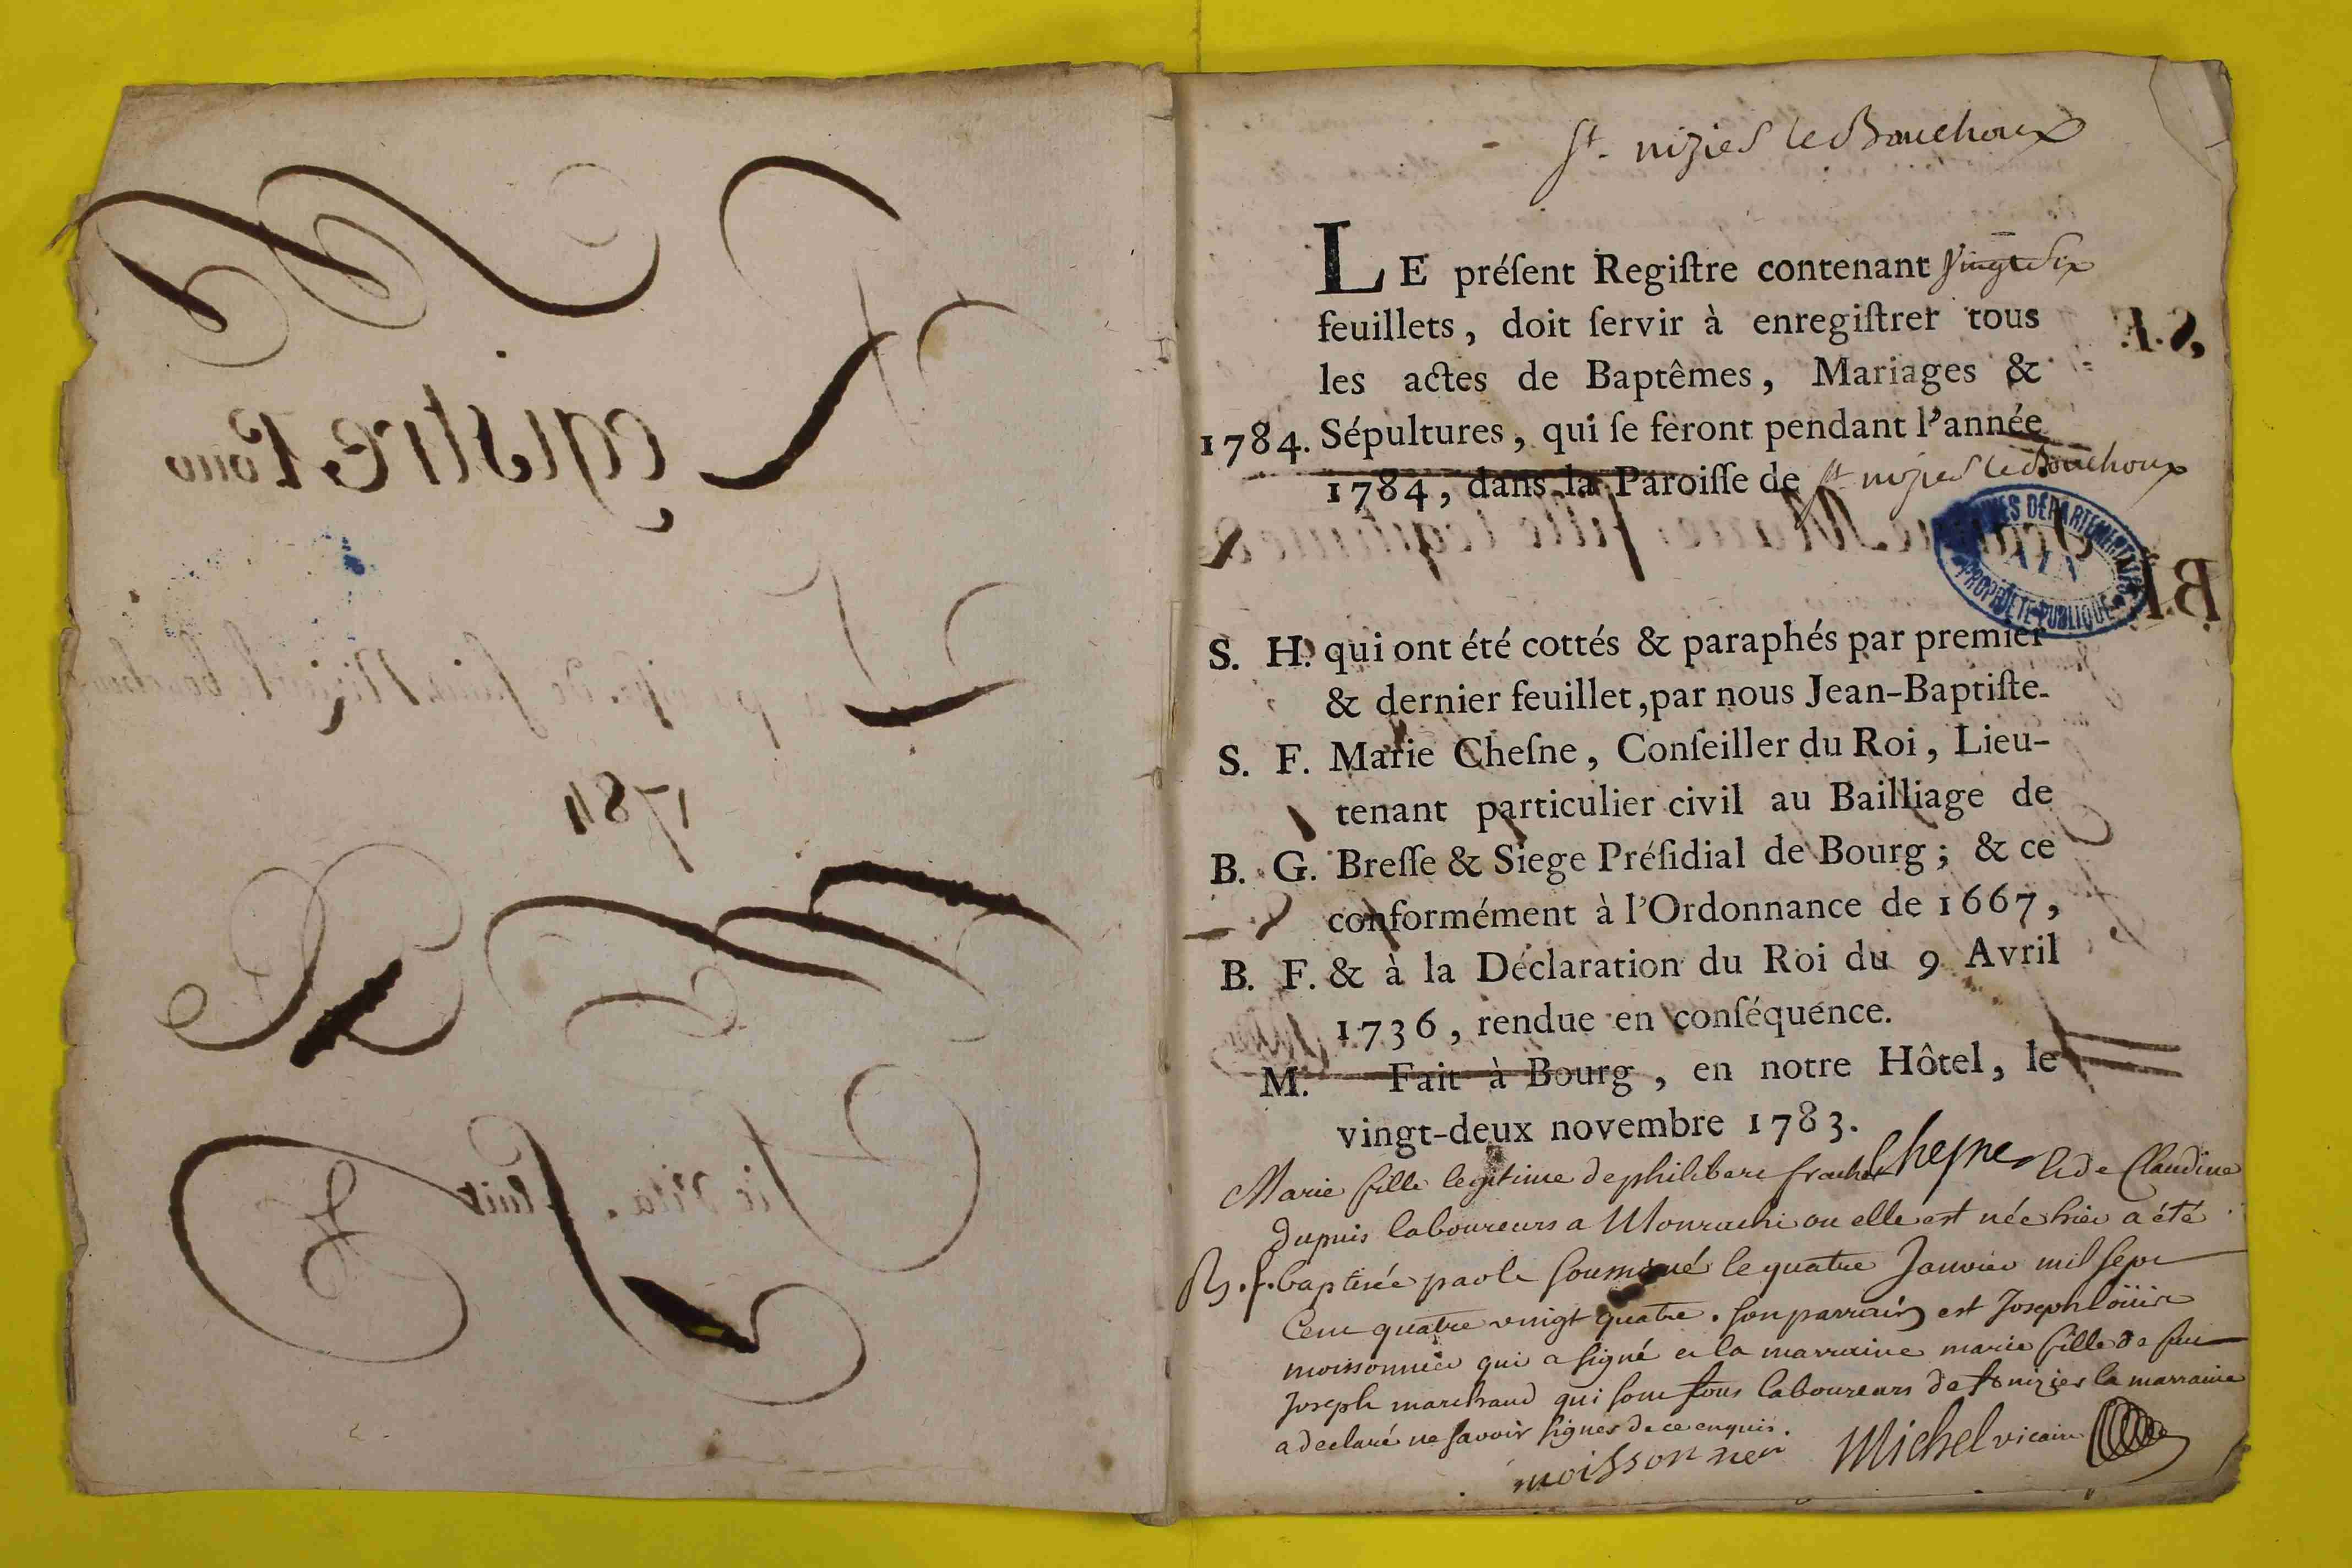 Registre Pour
La paroisse de saint Nizier le bouchoux
1784
sic vita fuit
St. nizier le Bouchoux
LE préſent Regiſtre contenant vingt Six
feuillets, doit ſervir à enregiſtrer tous
les actes de Baptêmes, Mariages &
1784. Sépultures, qui ſe feront pendant l'année
1784, dans la Paroiſſe de St. nizier le Bouchoux
ARCHIVES DÉPARTEMENTALES
AIN
PROPRIÉTÉ PUBLIQUE
S. H. qui ont été cottés & paraphés par premier
& dernier feuillet, par nous Jean-Baptiſte-
S. F. Marie Cheſne, Conſeiller du Roi, Lieu-
tenant particulier civil au Bailliage de
B. G. Breſſe & Siege Préſidial de Bourg ; & ce
conformément à l'Ordonnance de 1667,
B. F. & à la Déclaration du Roi du 9 Avril
1736, rendue en conſéquence.
M. Fait à Bourg, en notre Hôtel, le
vingt-deux novembre 1783.
Chesne
Marie fille legitime de philibert frachet & de Claudine
dupuis laboureurs a Monrachi ou elle est née hier a été
B. f. baptisée par le soussigné le quatre Janvier mil sept
Cent quatre vingt quatre. son parrain est Joseph
moissonnier qui a signé et la marraine marie fille de feu
Joseph marchand qui sont tous laboureurs de St nizier la marraine
a declaré ne savoir signer de ce enquis.
moissonnier Michel vicaire